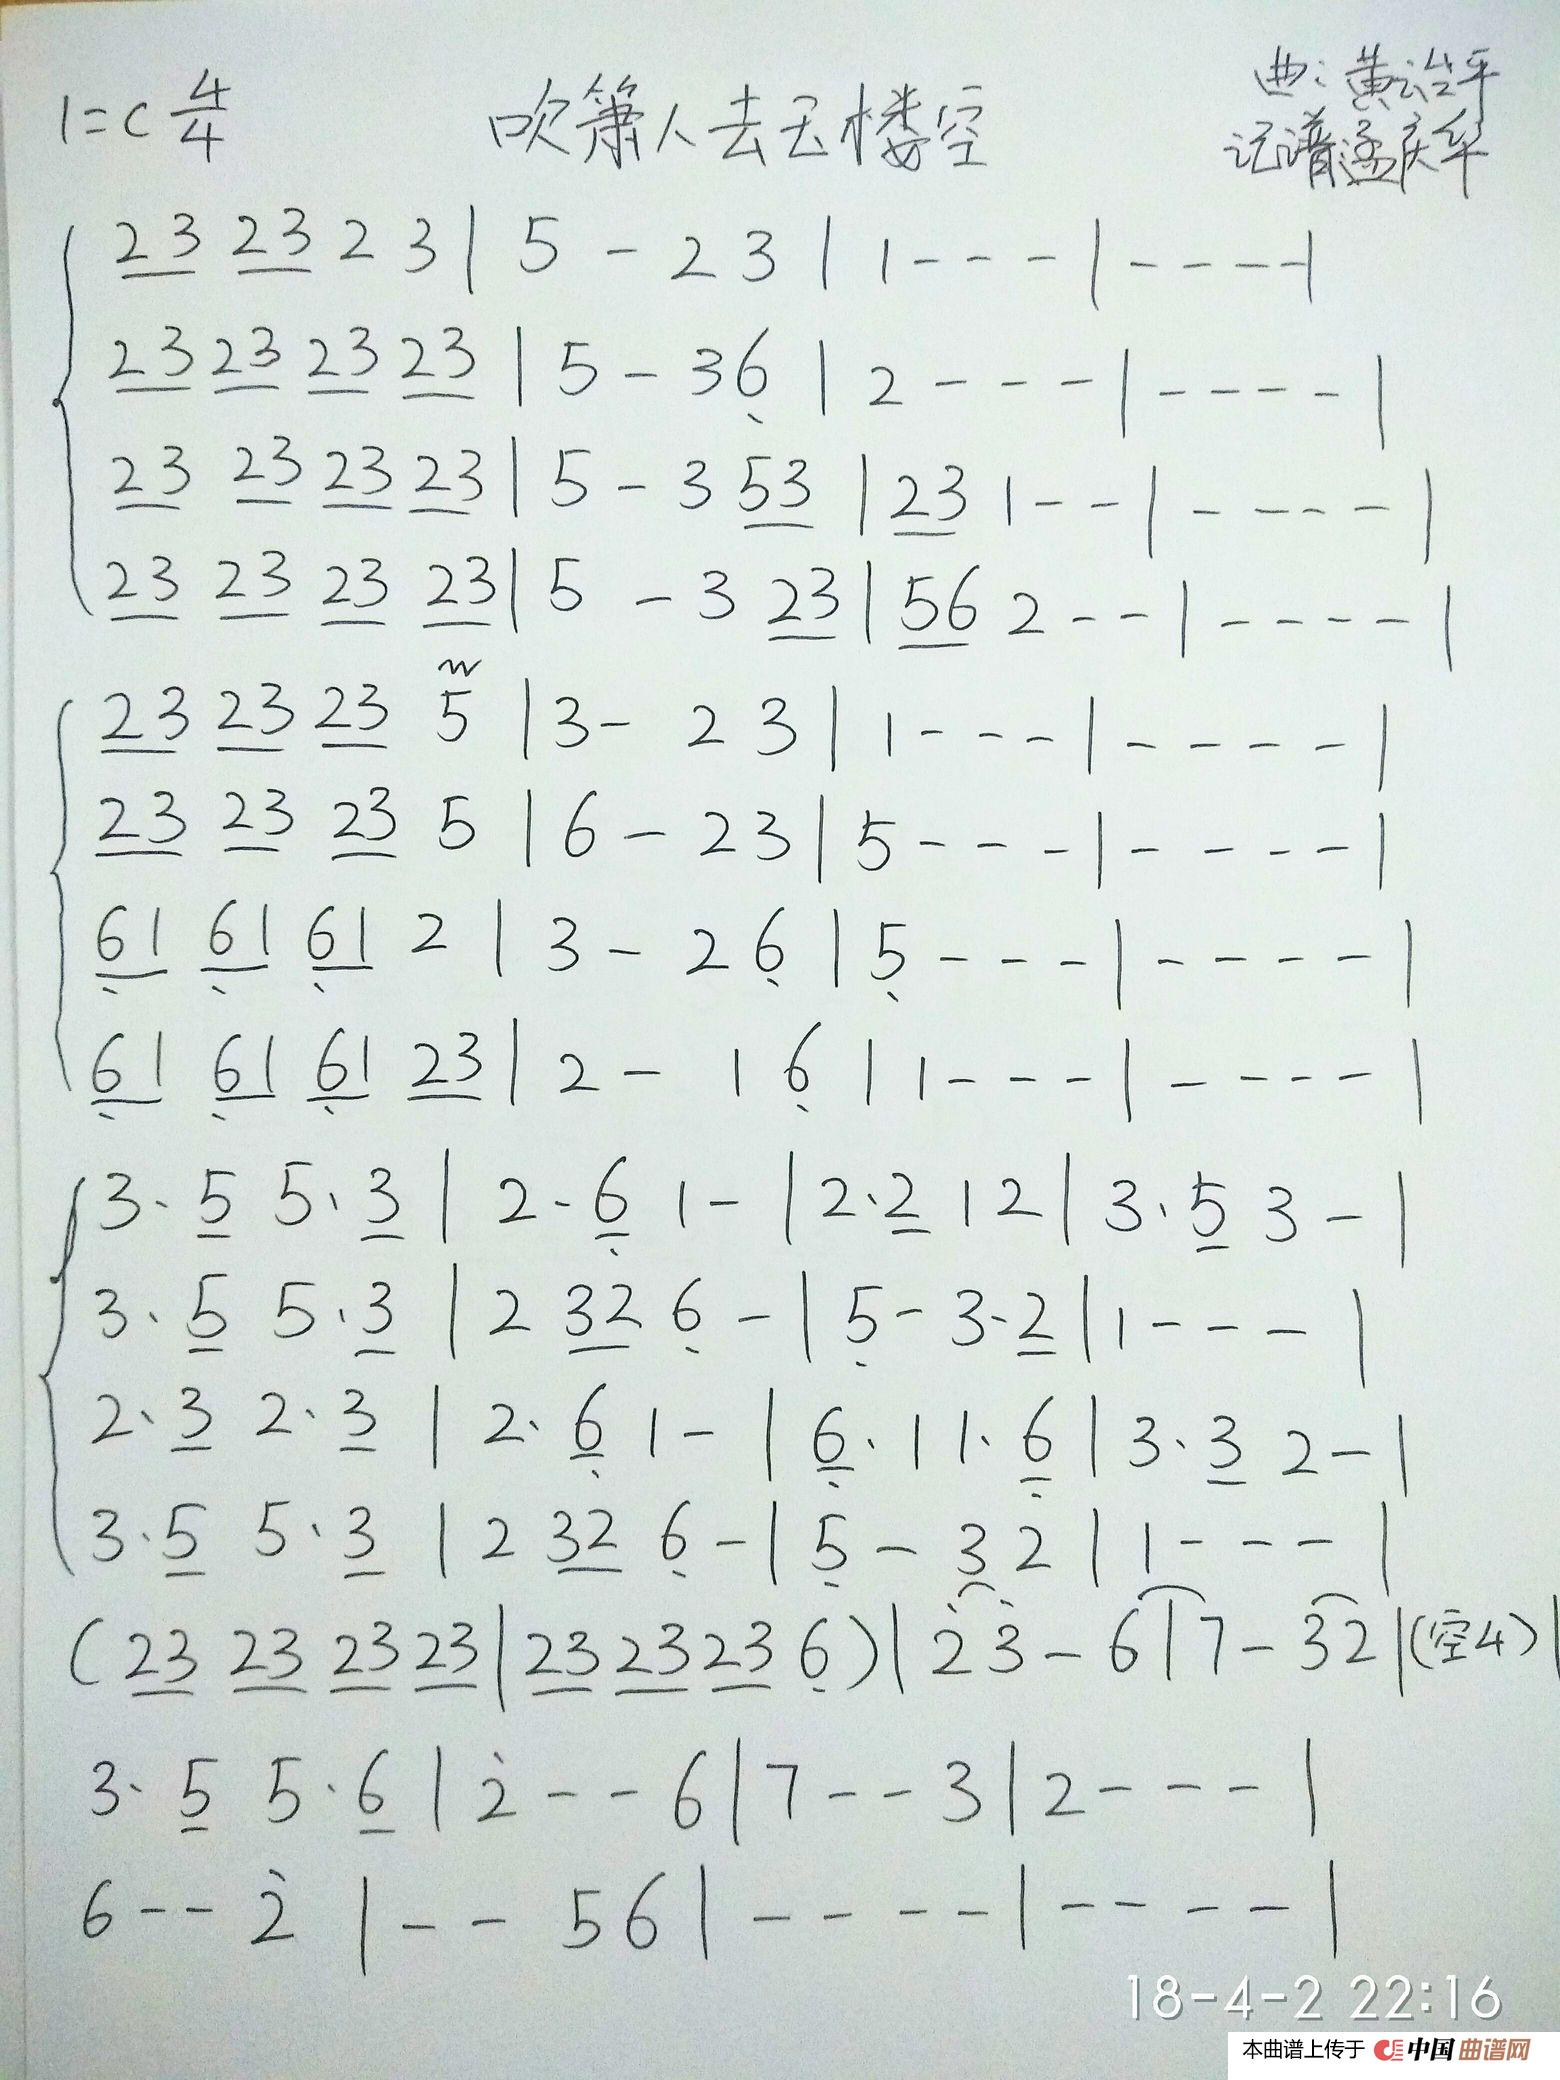 1=C 4/4 吹箫人去玉楼空 曲:黄诒平
记谱孟庆华
23 23 2 3 | 5 - 2 3 | 1 - - - | - - - - |
23 23 23 23 | 5 - 3 6̣ | 2 - - - | - - - - |
23 23 23 23 | 5 - 3 53 | 23 1 - - | - - - - |
23 23 23 23 | 5 - 3 23 | 56 2 - - | - - - - |
23 23 23 5 | 3 - 2 3 | 1 - - - | - - - - |
23 23 23 5 | 6 - 2 3 | 5 - - - | - - - - |
6̣1 6̣1 6̣1 2 | 3 - 2 6̣ | 5̣ - - - | - - - - |
6̣1 6̣1 6̣1 23 | 2 - 1 6̣ | 1 - - - | - - - - |
3· 5 5· 3 | 2· 6̣ 1 - | 2· 2 1 2 | 3· 5 3 - |
3· 5 5· 3 | 2 32 6̣ - | 5̣ - 3· 2 | 1 - - - |
2· 3 2· 3 | 2· 6̣ 1 - | 6̣· 1 1· 6̣ | 3· 3 2 - |
3· 5 5· 3 | 2 32 6̣ - | 5̣ - 3 2 | 1 - - - |
(23 23 23 23 | 23 23 23 6̣) | 2̇ 3̇ - 6 | 7 - 3 2 | (空4) |
3· 5 5· 6 | 2̇ - - 6 | 7 - - 3 | 2 - - - |
6 - - 2̇ | - - 5 6 | - - - - | - - - - |
18-4-2 22:16
本曲谱上传于 中国曲谱网